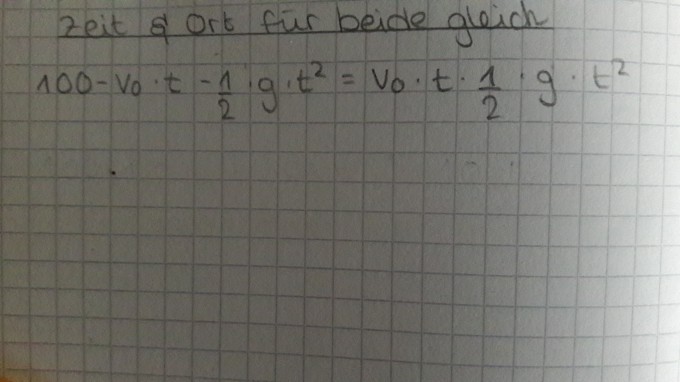 Zeit & Ort für beide gleich
100 - V₀ · t - 1/2 · g · t² = V₀ · t · 1/2 · g · t²